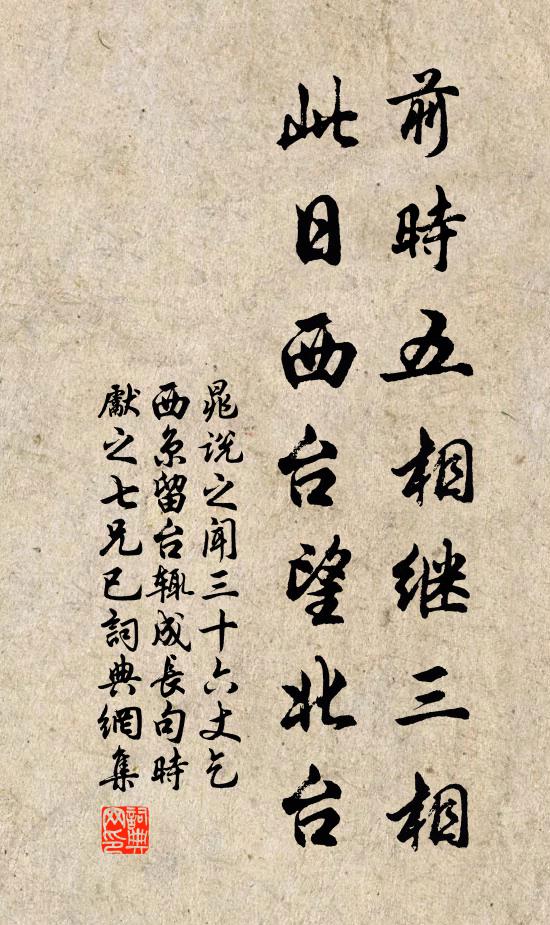 前時五相继三相
此日西台望北台
晁说之闻三十六丈乞
西京留台辄成長句時
獻之七兄已詞典網集
詞典网印